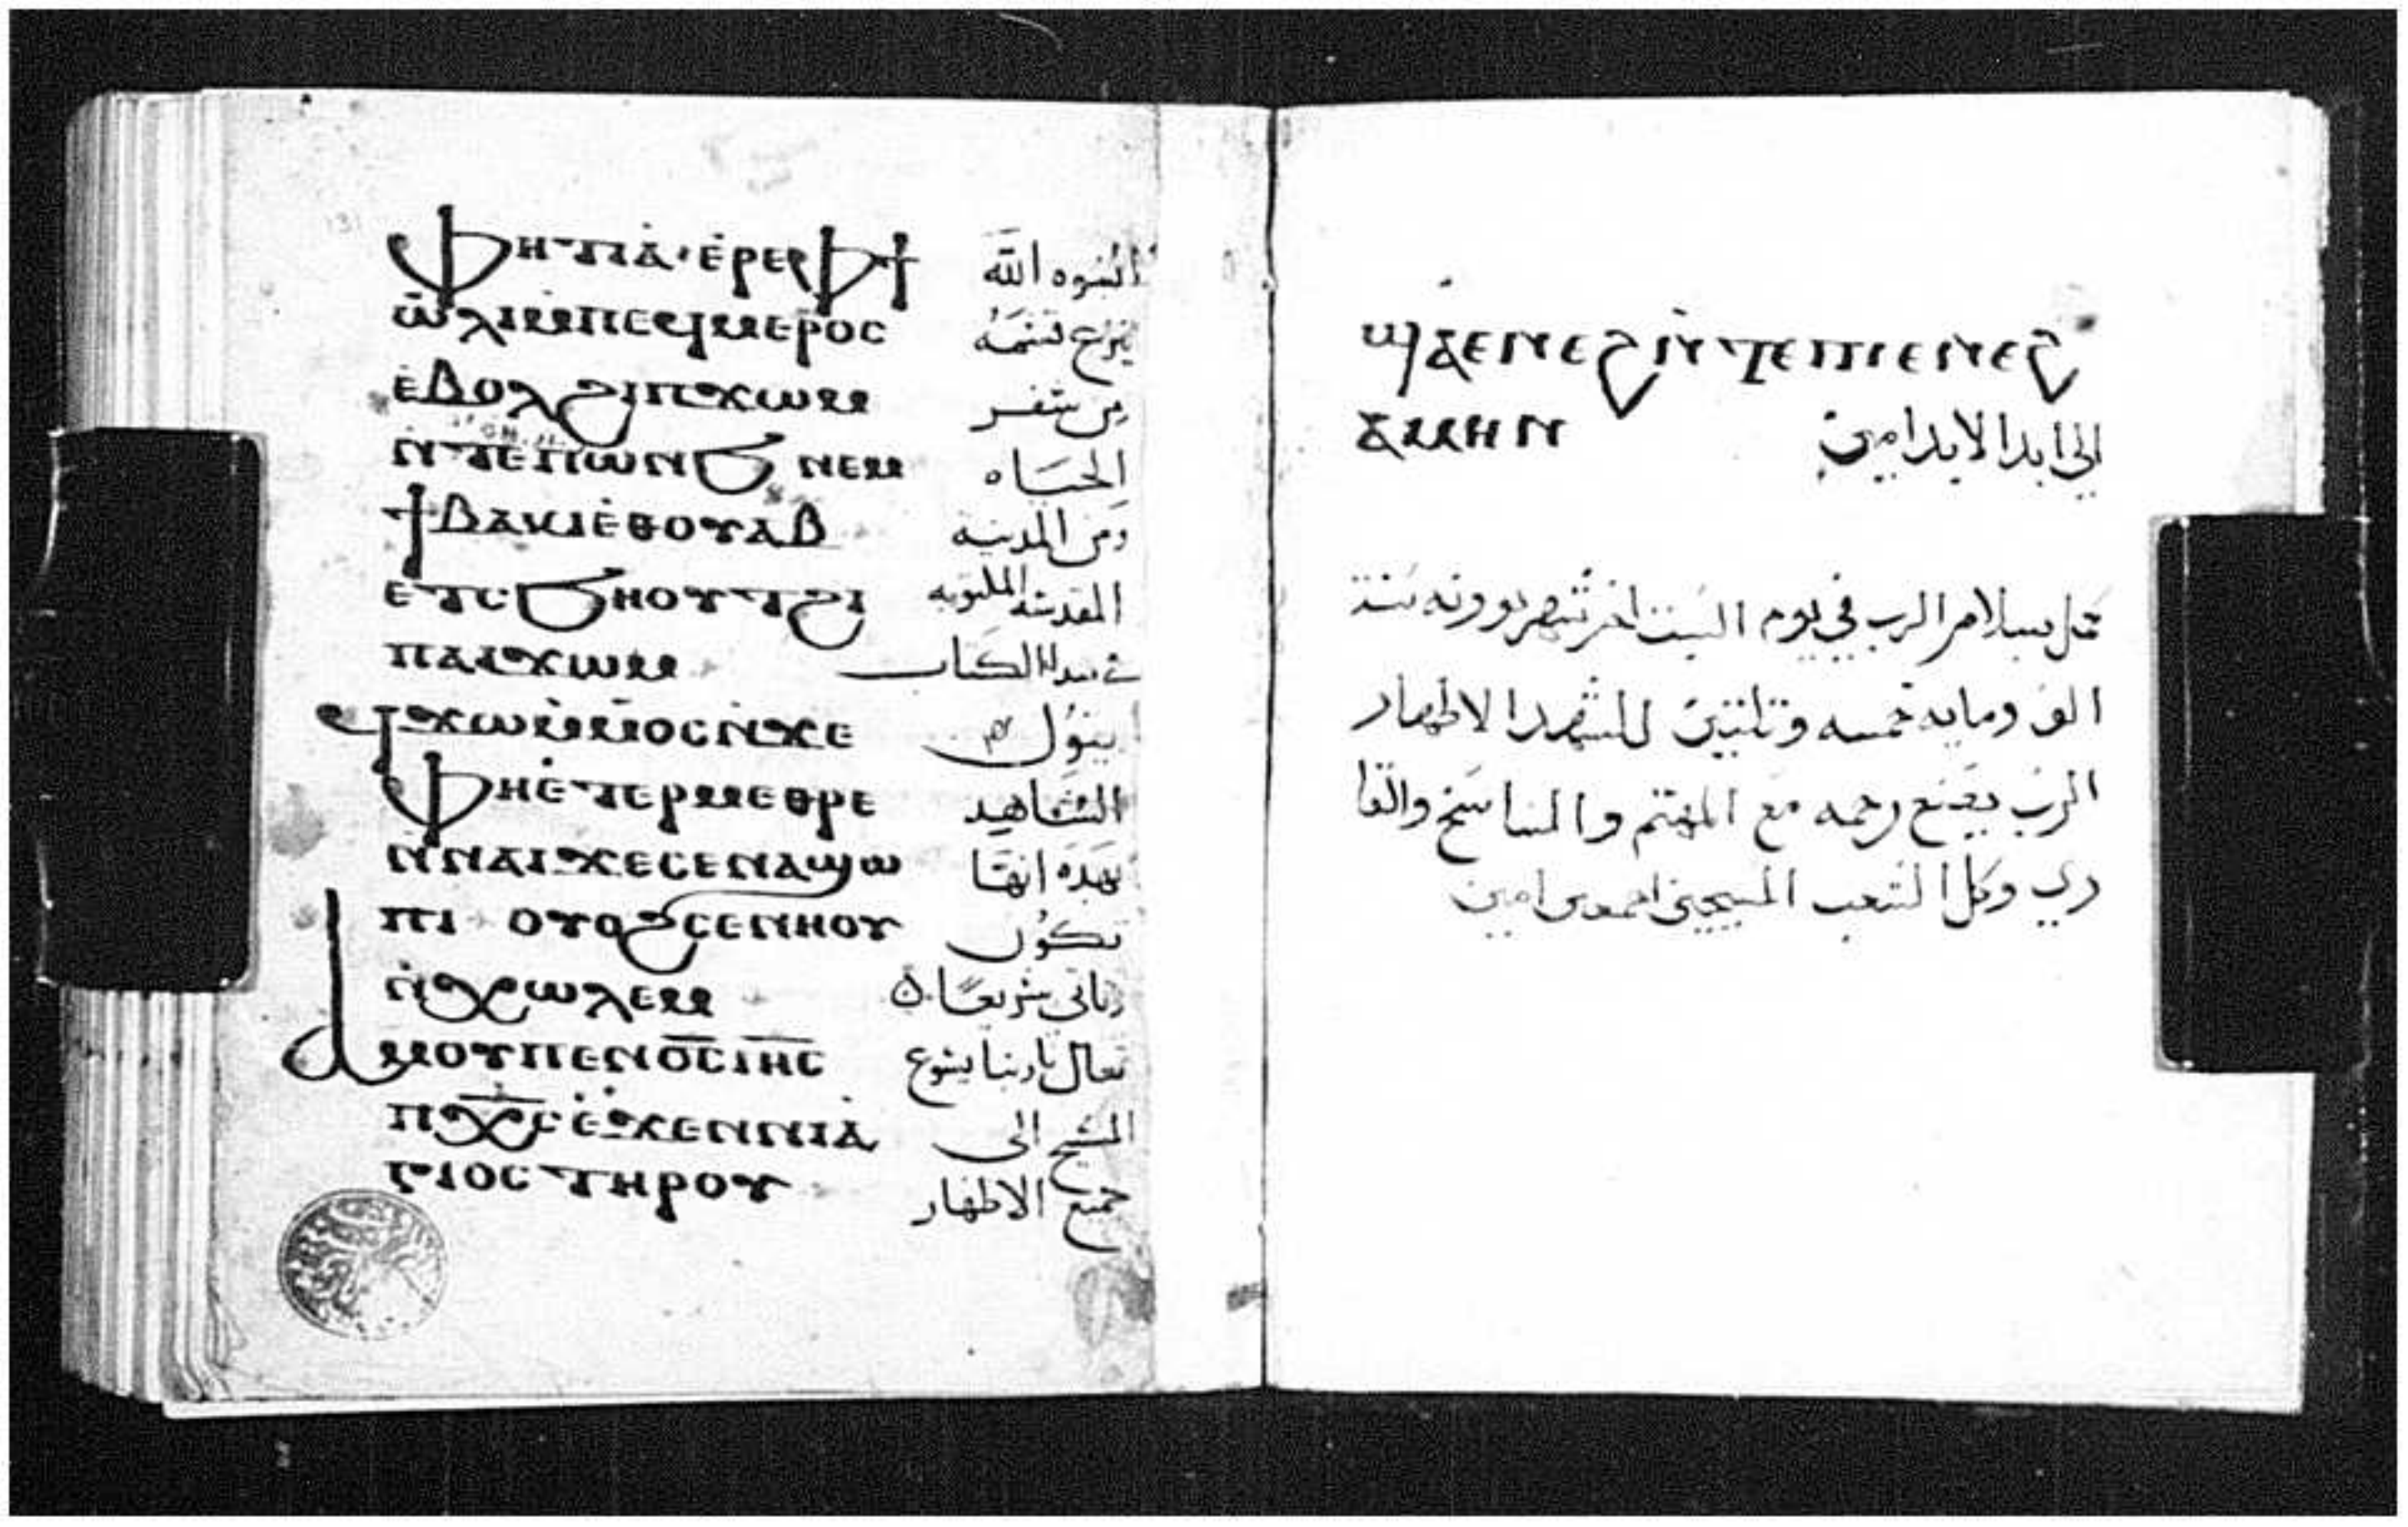 ⲫⲏⲧⲓⲁ ⲉⲣⲉⲫϯ النبوه الله
ⲱⲗⲓⲙⲡⲉϥⲙⲉⲣⲟⲥ ينزع
ⲉⲃⲟⲗϩⲓⲡϫⲱⲙ من سفر
ⲛⲧⲉⲡⲱⲛϧ ⲛⲉⲙ الحياه
ϯⲃⲁⲕⲓⲉⲑⲟⲩⲁⲃ ومن المدينه
ⲉⲧⲥϧⲏⲟⲩⲧϩⲓ المقدسه المكتوبه
ⲡⲁⲓϫⲱⲙ الكتاب
ϥϫⲱⲙⲙⲟⲥⲛϫⲉ يقول
ⲫⲏⲉⲧⲉⲣⲙⲉⲑⲣⲉ الشاهد
ⲛⲛⲁⲓϫⲉⲥⲉⲛⲁϣⲱ بهده انها
ⲡⲓ ⲟⲩⲟϩⲥⲉⲛⲏⲟⲩ تكون
ⲛⲭⲱⲗⲉⲙ وتاتي سريعا
ⲁⲙⲟⲩⲡⲉⲛⲟ̅ⲥ̅ⲓⲏ̅ⲥ̅ تعال يا ربنا يسوع
ⲡⲭ̅ⲥ̅ⲉϫⲉⲛⲛⲓⲁ المسيح الى
ⲅⲓⲟⲥ ⲧⲏⲣⲟⲩ جميع الاطهار
ϣⲁⲉⲛⲉϩⲛⲧⲉⲡⲓⲉⲛⲉϩ
ⲁⲙⲏⲛ الى ابد الابد امين
كمل بسلام الرب في يوم السبت اخر شهر بوونه سنة
الف ومايه خمسه وتلتين للشهدا الاطهار
الرب يصنع رحمه مع المهتم والناسخ والقا
ري وكل الشعب المسيحي اجمعين امين